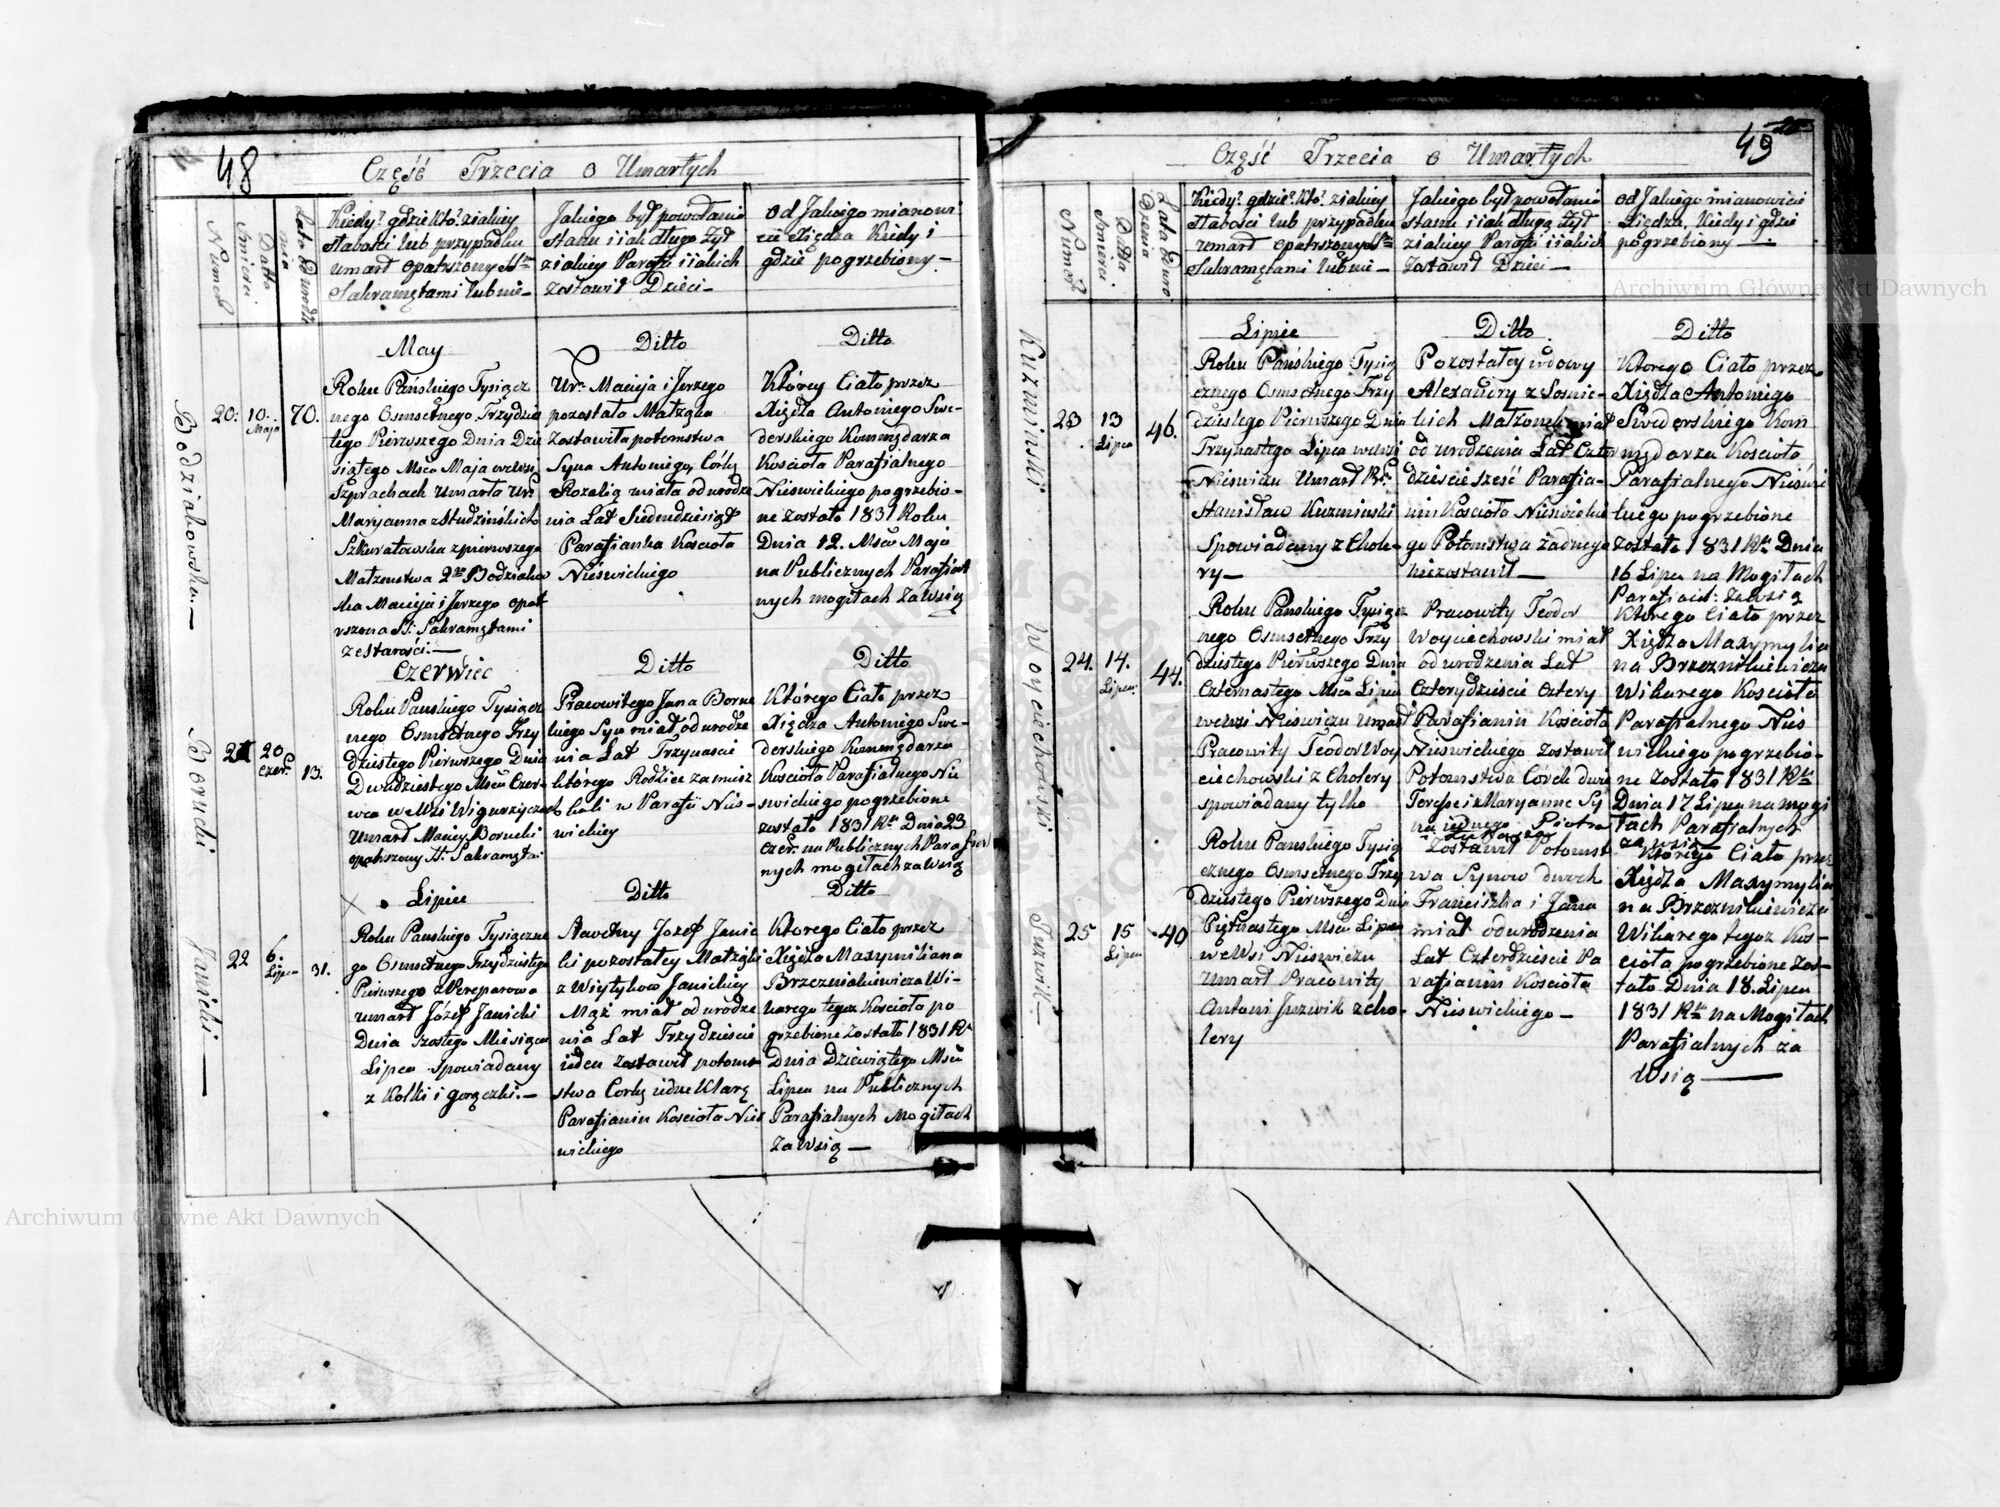 48
Część Trzecia o Umarłych
Numer
Datta Śmierci
Lata Urodzenia
Kiedy? gdzie? kto? z jakiey
słabości lub przypadku
umarł opatrzony SSmi
Sakramętami lub nie—
Jakiego był powołania
stanu i jak długo żył
z jakiey Parafii i jakich
zostawił Dzieci—
Od Jakiego mianowi
cie Xiędza Kiedy i
gdzie pogrzebiony—
Bodziakowska.—
20.
10.
Maja
70.
May
Roku Pańskiego Tysiącz
nego Osmsetnego Trzydzies
tego Pierwszego Dnia Dzie
siątego Msca Maja we Wsi
Szprachach Umarła Ur:
Maryanna z Studzińskich
Szkuratowska z pierwszego
Małżenstwa 2go Bodziakow
ska Macieja i Jerzego opat
rszona SS: Sakramętami
z starości.—
Ditto
Ur: Macieja i Jerzego
pozostała Małżąka
Zostawiła potomstwa
Syna Antoniego, Córkę
Rozalią miała od urodze
nia Lat Siedmdziesiąt
Parafianka Kościoła
Nieświckiego
Ditto
Którey Ciało przez
Xiędza Antoniego Swe-
derskiego Kommędarza
Kościoła Parafialnego
Nieswickiego pogrzebio-
ne zostało 1831 Roku
Dnia 12. Msca Maja
na Publicznych Parafial
nych mogiłach za Wsią
Borucki
21
20
Czer:
13.
Czerwiec
Roku Pańskiego Tysiącz
nego Osmsetnego Trzy
dziestego Pierwszego Dnia
Dwudziestego Msca Czer-
wca we Wsi Wigurzycach
Umarł Maciey Borucki
opatrszony SS. Sakramęta:
Ditto
Pracowitego Jana Boruc
kiego Syn miał od urodze
nia Lat Trzynascie
którego Rodzice zamiesz
kali w Parafii Nies-
wickiey
Ditto
Którego Ciało przez
Xiędza Antoniego Swe-
derskiego Komendarza
Kościoła Parafialnego Nie
swickiego pogrzebione
zostało 1831 Rku Dnia 23
Czer: na Publicznych Parafial
nych mogiłach za Wsią
Janicki—
22
6.
Lipca
31.
Lipiec
Roku Pańskiego Tysiączne
go Osmsetnego Trzydziestego
Pierwszego z Pereparowa
umarł Józef Janicki
Dnia Szostego Miesiąca
Lipca Spowiadany
z Kolki i gorączki.—
Ditto
Sławetny Jozef Janic
ki pozostałey Małżąki
z Wiytykow Janickiey
Mąż miał od urodze
nia Lat Trzydzieście
jeden zostawił potom
stwa Corkę jedne Klarę
Parafianin Kosciola Nies
wickiego
Ditto
Ktorego Ciało przez
Xiędza Maxymiliana
Brzeznikiewicza Wi-
karego tegoz Kościoła po
grzebione zostało 1831 Rku
Dnia Dziewiątego Msca
Lipca na Publicznych
Parafialnych Mogiłach
za Wsią—
49
Część Trzecia o Umarłych
Numer
Datta Śmierci.
Lata Urodzenia
Kiedy? gdzie? kto? z jakiey
słabości lub przypadku
umarł opatrszony SSmi
Sakramętami lub nie—
Jakiego był powołania
stanu i jak długo żył
z jakiey Parafii i jakich
zostawił Dzieci—
od Jakiego mianowicie
Xiędza, Kiedy i gdzie
pogrzebiony—
Kuzminski
23
13
Lipca
46.
Lipiec
Roku Pańskiego Tysią
cznego Osmsetnego Trzy
dziestego Pierwszego Dnia
Trzynastego Lipca we Wsi
Nieswiczu Umarł Ur:
Stanisław Kuzminski
Spowiadany z Chole-
ry—
Ditto
Pozostałey wdowy
Alexandry z Sosnic-
kich Małżonek miał
od urodzenia Lat Czter
dzieście sześć Parafia-
nin Kościoła Nieswickie
go Potomstwa żadnego
nie zostawił—
Ditto
Ktorego Ciało przez
Xiędza Antoniego
Swederskiego Kom
mędarza Kościoła
Parafialnego Nieświc
kiego pogrzebione
zostało 1831 Rku Dnia
16 Lipca na Mogiłach
Parafial: za Wsią
Woyciechowski
24.
14.
Lipca
44.
Roku Pańskiego Tysiącz
nego Osmsetnego Trzy
dziestego Pierwszego Dnia
Czternastego Msca Lipca
we wsi Nieswiczu Umarł
Pracowity Teodor Woy
ciechowski z Cholery
spowiadany tylko
Pracowity Teodor
Woyciechowski miał
od urodzenia Lat
Czterydzieście Cztery
Parafianin Kościoła
Nieswickiego zostawił
Potomstwa Córek dwie
Teresse i Maryanne Sy
na jednego Piotra
Ktorego Ciało przez
Xiędza Maxymylia
na Brzeznikiewicza
Wikarego Kościoła
Parafialnego Nies
wickiego pogrzebio-
ne zostało 1831 Rku
Dnia 17 Lipca na mogi
łach Parafialnych
za wsią
Juzwik—
25
15
Lipca
40
Roku Pańskiego Tysią
cznego Osmsetnego Trzy
dziestego Pierwszego Dnia
Piętnastego Msca Lipca
we Wsi Nieswiczu
Umarł Pracowity
Antoni Juzwik z cho-
lery
Zostawił Potomst
wa Synow dwoch
Franciszka i Jana
miał od urodzenia
Lat Czterdzieście Pa
rafianin Kościoła
Nieswickiego—
Ktorego Ciało przez
Xiędza Maxymylia
na Brzeznikiewicza
Wikarego tegoz Koś-
cioła pogrzebione zos-
tało Dnia 18. Lipca
1831 Rku na Mogiłach
Parafialnych za
Wsią—
Archiwum Główne Akt Dawnych
Archiwum Główne Akt Dawnych